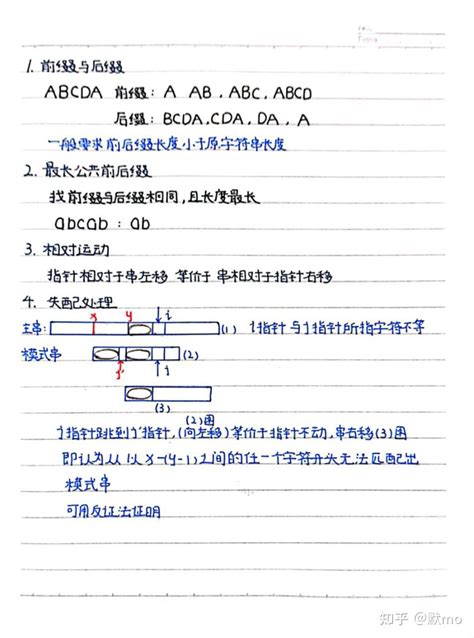 1. 前缀与后缀
ABCDA 前缀: A AB, ABC, ABCD
后缀: BCDA, CDA, DA, A
一般要求前后缀长度小于原字符串长度
2. 最长公共前后缀
找前缀与后缀相同,且长度最长
abcab : ab
3. 相对运动
指针相对于串左移 等价于 串相对于指针右移
4. 失配处理
x y i
主串: (1) i指针与j指针所指字符不等
模式串 (2)
j' j
(3)
(2)图
j指针跳到j'指针,(向左移)等价于指针不动,串右移(3)图
即认为从以x~(y-1)之间的任一个字符开头无法匹配出
模式串
可用反证法证明
知乎 @默mo